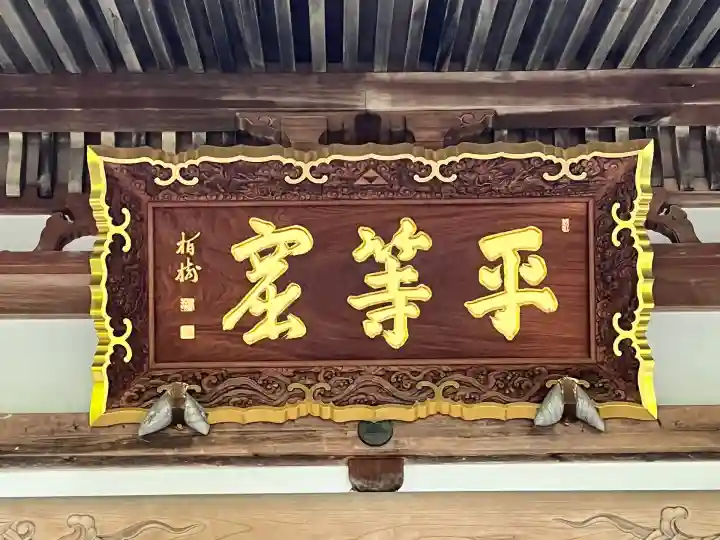 平等窟
栢樹